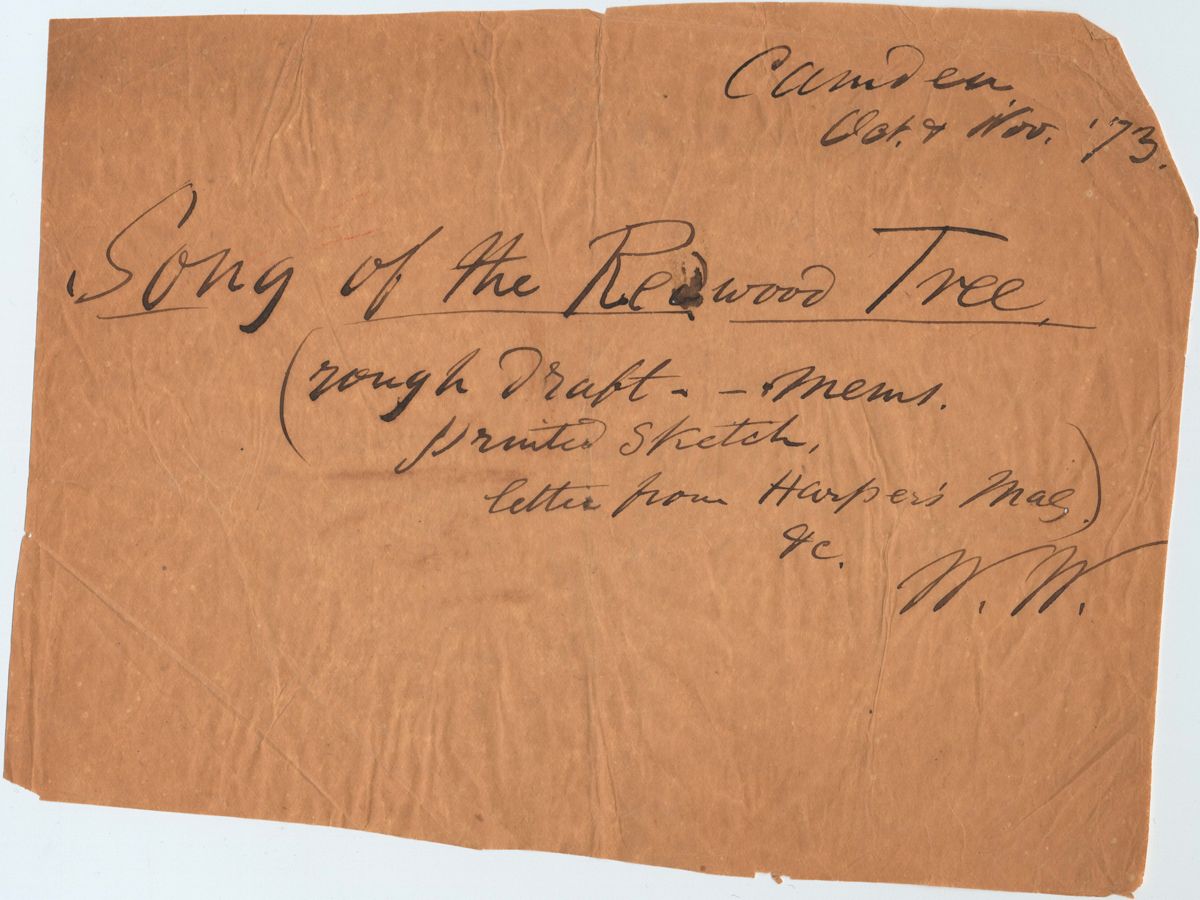 Camden
Oct. & Nov. '73.
Song of the Redwood Tree.
(rough draft - - mems.
printed sketch,
letter from Harper's Mag.)
&c.
W. W.